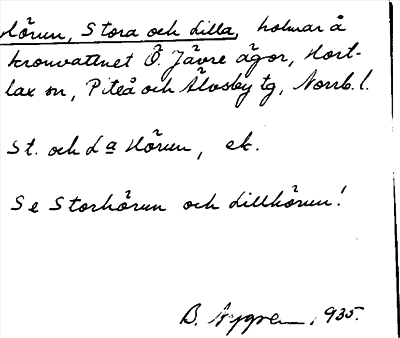 Hörun, Stora och Lilla, holmar å
kronvattnet Ö. Jävre ägor, Hort-
lax sn, Piteå och Älvsby tg, Norrb. l.
St. och La Hörun, ek.
Se Storhörun och Lillhörun!
B. Nygren, 1935.